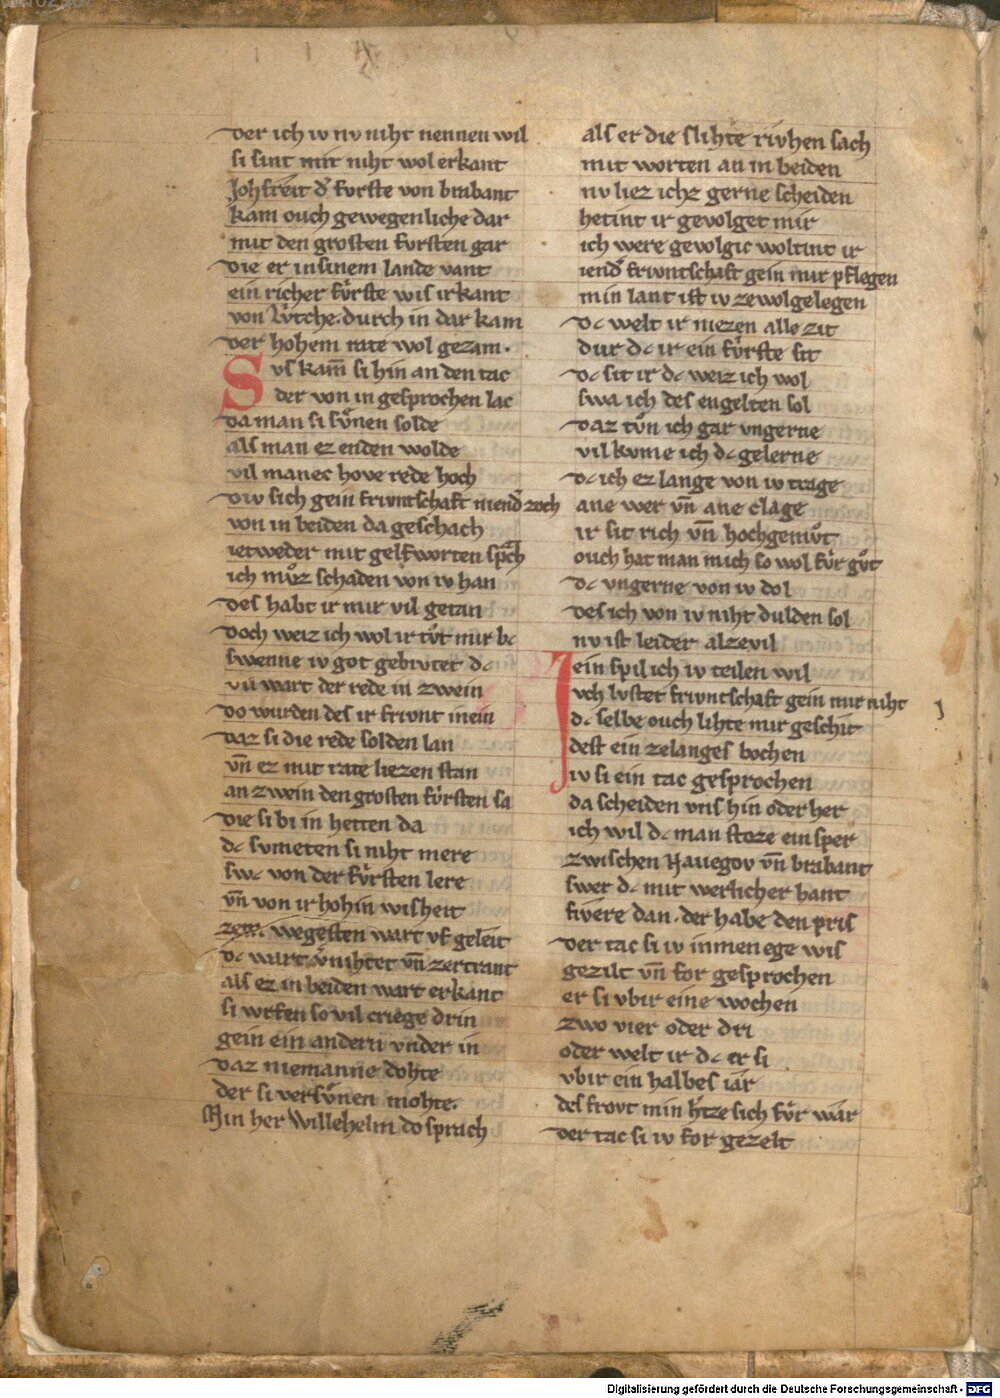 der ich iv nv niht nennen wil
si sint mir niht wol erkant
Johfreit d͛ fvrste von brabant
kam ouch gewegenliche dar
mit den grosten fvrsten gar
die er in sinem lande vant
ein richer fv̊rste wis irkant
von Lv̊tche. durch in dar kam
der hohem rate wol gezam.
Svs kam̄ si hin an den tac
der von in gesprochen lac
da man si sv̊nen solde
als man ez enden wolde
vil manec hove rede hoch
div sich gein frivntschaft niend͛ zoch
von in beiden da geschach
ietweder mit gelfworten sp͛ch
ich mv̊z schaden von iv han
des habt ir mir vil getan
doch weiz ich wol ir tv̊t mir bc
swenne iv got gebivtet dc
nv wart der rede in zwein
do wurden des ir frivnt inein
daz si die rede solden lan
vn̄ ez mit rate liezen stan
an zwein den grosten fv̊rsten sa
die si bi in hetten da
dc svmeten si niht mere
swc von der fv̊rsten lere
vn̄ von ir hohin wisheit
zem. wegesten wart vf geleit
dc wart v͛nihtet vn̄ zertrant
als ez in beiden wart erkant
si wrfen so vil criege drin
gein ein andern vnder in
daz niemanne dohte
der si versv̊nen mohte.
Min her Willehelm do sprach
als er die slihte rivhen sach
mit worten an in beiden
nv liez ichz gerne scheiden
hetint ir gevolget mir
ich were gevolgic woltint ir
iend͛ frivntschaft gein mir pflegen
min lant ist iv ze wol gelegen
dc welt ir niezen alle zit
dur dc ir ein fv̊rste sit
dc sit ir dc weiz ich wol
swa ich des engelten sol
daz tv̊n ich gar vngerne
vil kvme ich dc gelerne
dc ich ez lange von iv trage
ane wer vn̄ ane clage
ir sit rich vn̄ hochgemv̊t
ouch hat man mich so wol fv̊r gv̊t
dc vngerne von iv dol
des ich von iv niht dulden sol
nv ist leider alzevil
Jein spil ich iv teilen wil
vch lvstet frivntschaft gein mir niht
dc selbe ouch lihte mir geschit
dest ein zelanges bochen
iv si ein tac gesprochen
da scheiden vns hin oder her
ich wil dc man stoze ein sper
zwischen Hanegov vn̄ brabant
swer dc mit werlicher hant
fvere dan. der habe den pris
der tac si iv in menege wis
gezilt vn̄ for gesprochen
er si vbir eine wochen
zwo vier oder dri
oder welt ir dc er si
vbir ein halbes iar
des frovt min h͛tze sich fv̊r war
der tac si iv for gezelt
Digitalisierung gefördert durch die Deutsche Forschungsgemeinschaft - DFG